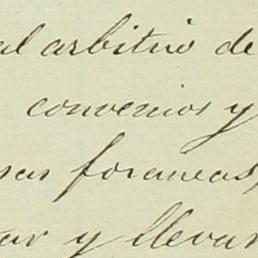 al arbitrio de
convenios y
sas foraneas,
ar y llevar